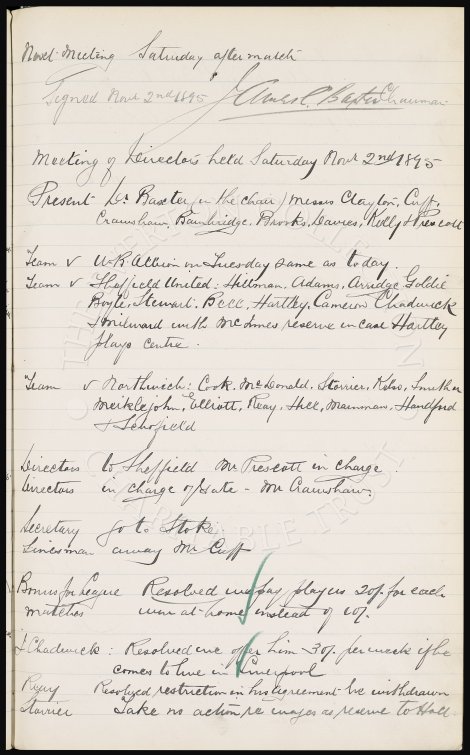 Next Meeting Saturday after match
Signed Novr 2nd 1895 James C. Baxter Chairman
Meeting of Directors held Saturday Novr 2nd 1895
Present Dr Baxter (in the chair) Messrs Clayton, Cuff,
Crawshaw, Bainbridge, Brooks, Davies, Kelly & Prescott
Team v W.B. Albion on Tuesday same as today.
Team v Sheffield United: Hillman, Adams, Arridge Goldie
Boyle, Stewart, Bell, Hartley, Cameron Chadwick
& Milward with McInnes reserve in case Hartley
plays centre.
Team v Northwich: Cook, McDonald, Storrier, Kelso,
Meiklejohn, Elliott, Reay, Hill, Handford
& Schofield
Directors to Sheffield Mr Prescott in charge.
Directors in charge of Gate - Mr Crawshaw
Secretary go to Stoke
Linesman away Mr Cuff
Bonus for League Resolved we pay players 20/- for each
matches won at home instead of 10/-
E Chadwick: Resolved we offer him 30/- per week if he
comes to live in Liverpool
Reay Resolved restriction in his agreement be withdrawn
Storrier Take no action re wages as reserve to Holt